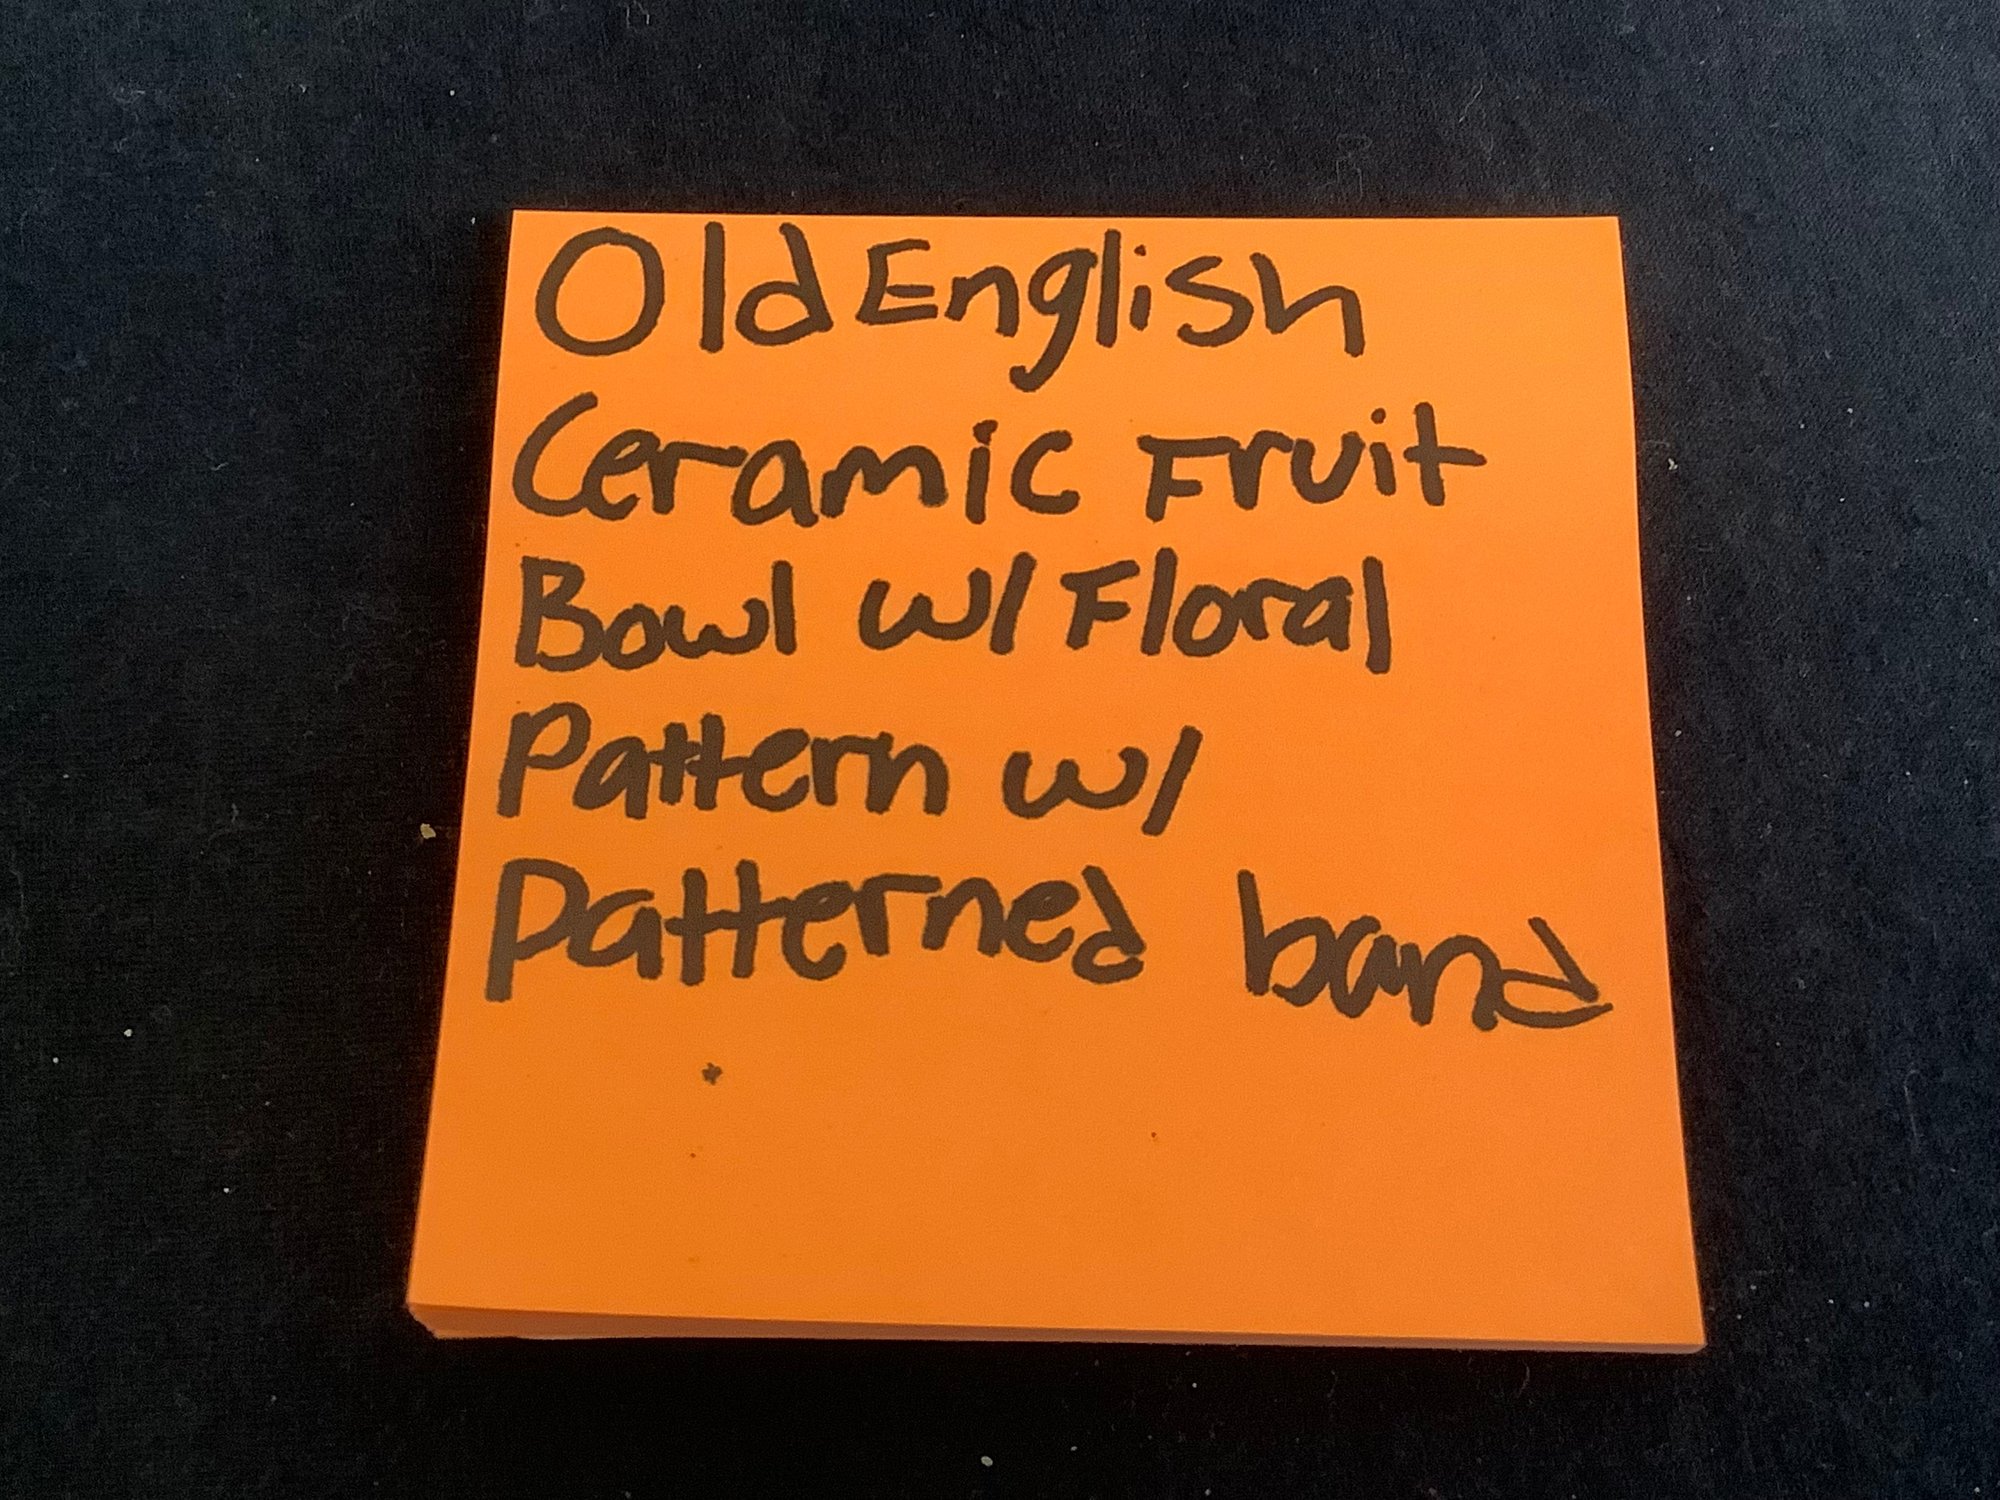 Old English
Ceramic Fruit
Bowl w/ Floral
Pattern w/
Patterned band